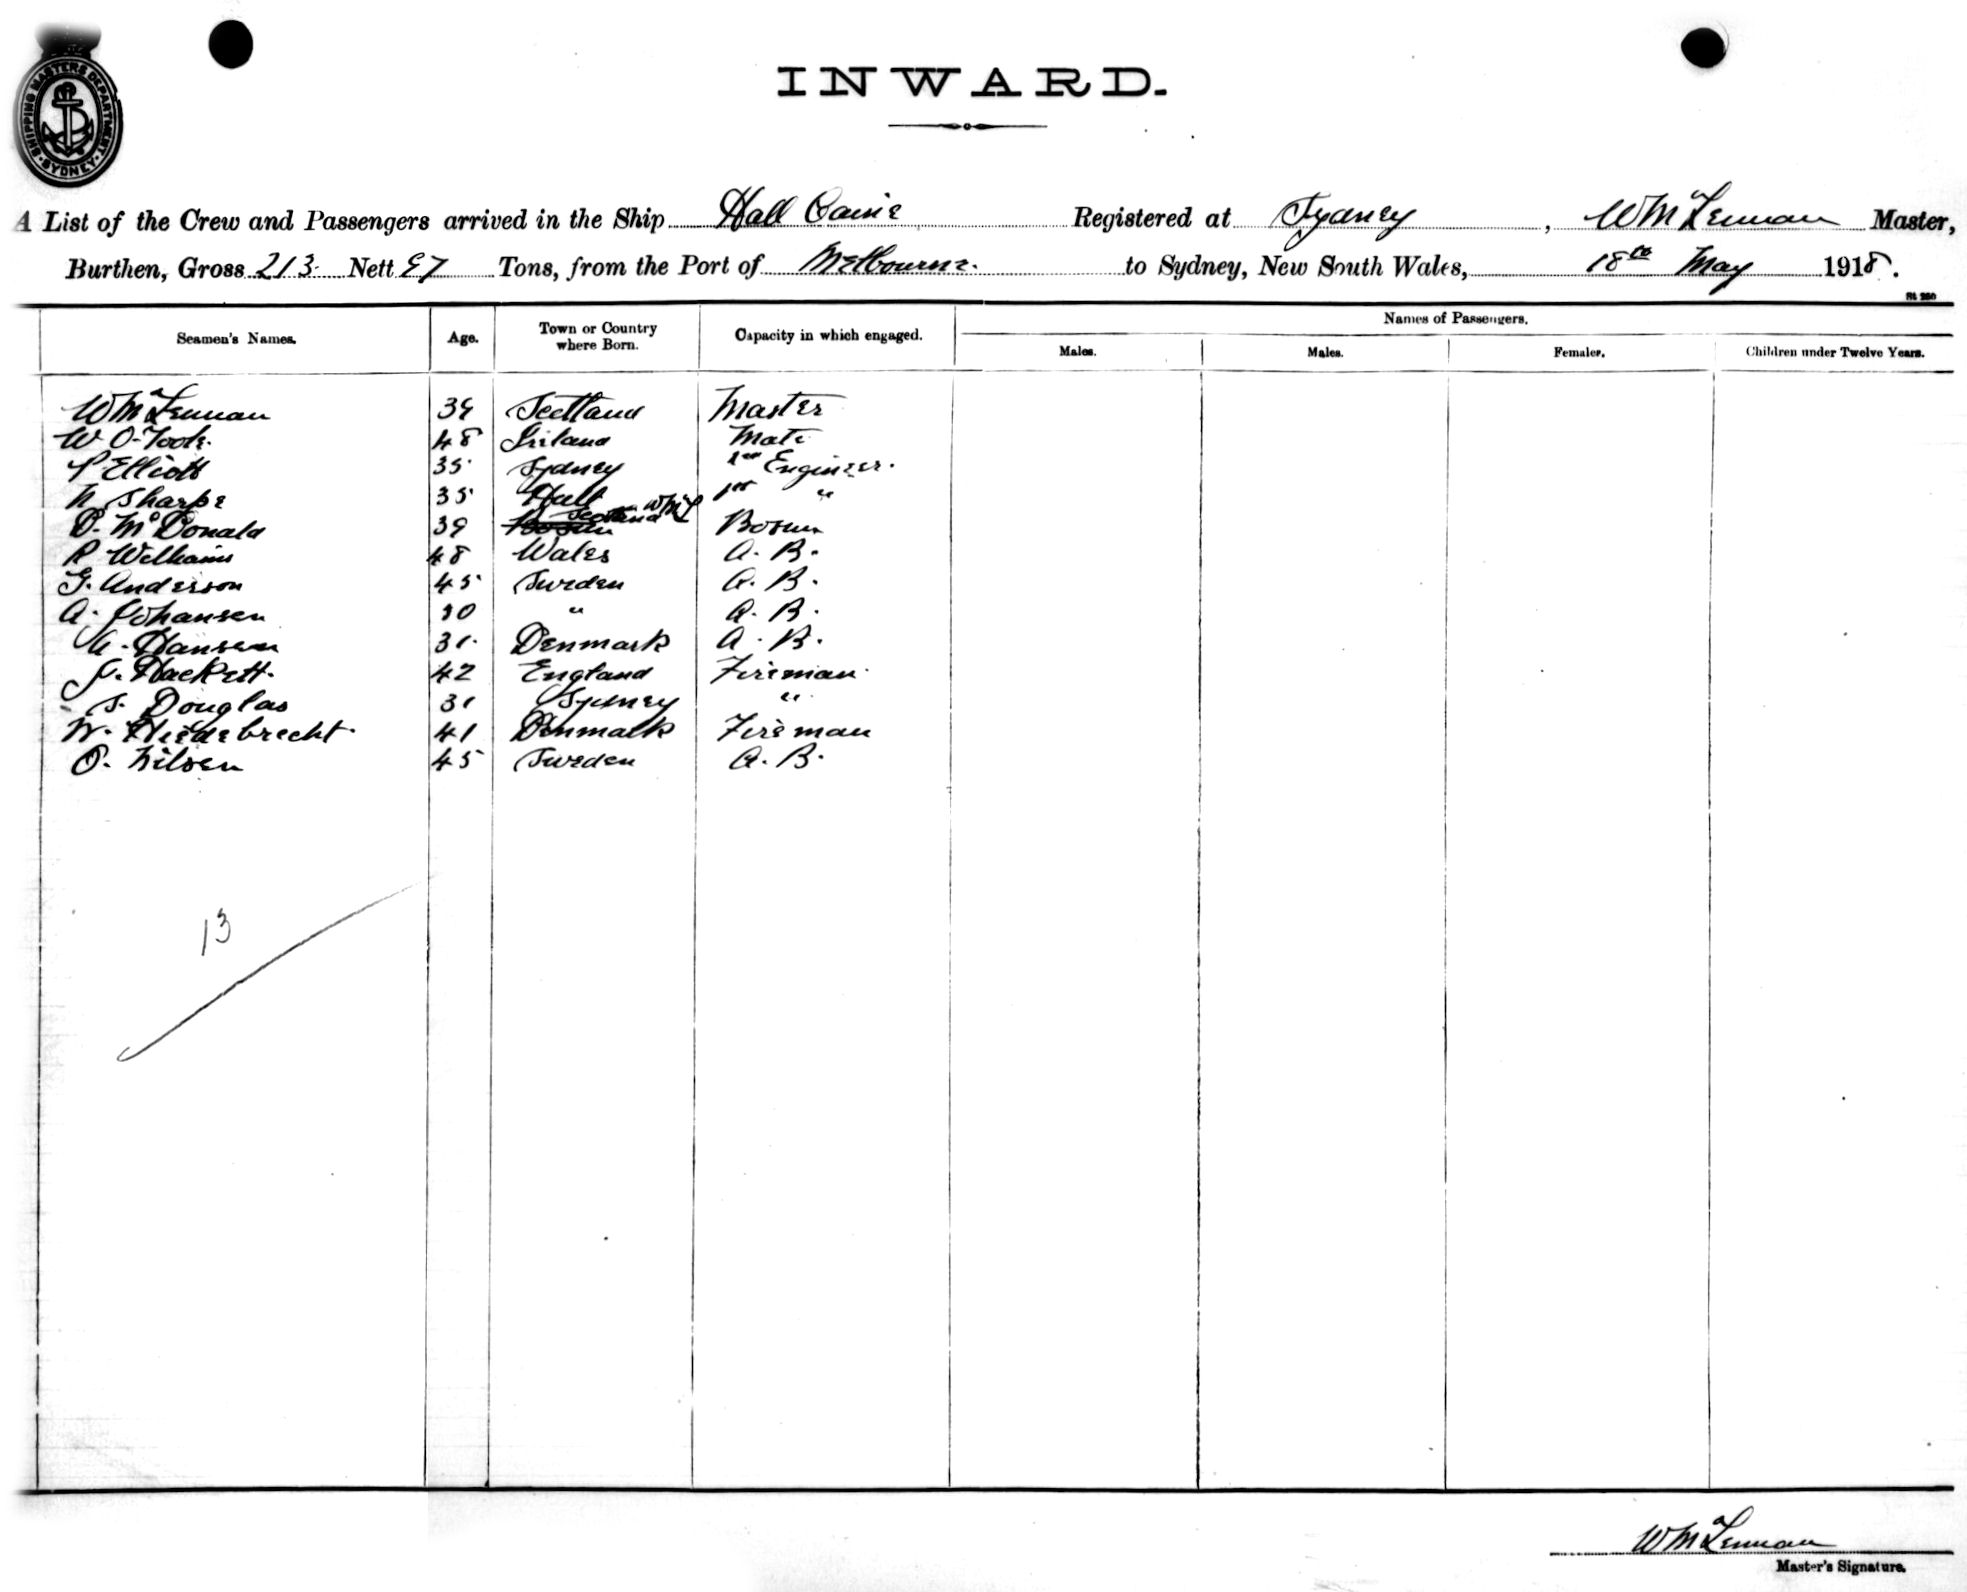 SHIPPING MASTERS DEPARTMENT
SYDNEY
INWARD.
A List of the Crew and Passengers arrived in the Ship Hall Caine Registered at Sydney, W McLennan Master,
Burthen, Gross 213 Nett 97 Tons, from the Port of Melbourne. to Sydney, New South Wales, 18th May 1918.
Seamen's Names. Age. Town or Country where Born. Capacity in which engaged. Names of Passengers.
Males. Males. Females. Children under Twelve Years.
W McLennan 39 Scotland Master
W O'Toole. 48 Ireland Mate
P Elliott 35 Sydney Engineer.
N Sharpe 35 Hull 1st "
D. McDonald 39 Bosun Scotland WMcL Bosun
R Williams 48 Wales A. B.
G. Anderson 45 Sweden A. B.
A. Johansen 30 " A. B.
Hansen 31 Denmark A. B.
J. Hackett. 42 England Fireman
S. Douglas 31 Sydney "
W. Hiedebrecht. 41 Denmark Fireman
O. Nilsen 45 Sweden A. B.
13
W McLennan
Master's Signature.